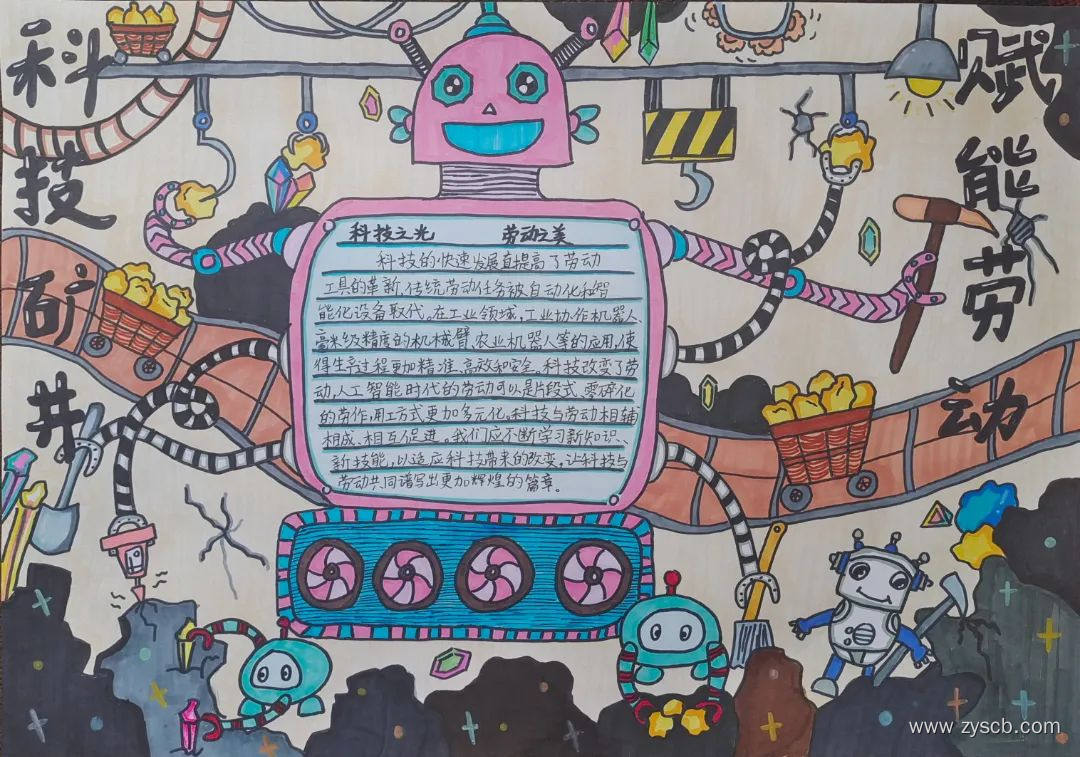 科技矿井
赋能劳动
科技之光 劳动之美
科技的快速发展直提高了劳动
工具的革新，传统劳动任务被自动化和智
能化设备取代。在工业领域，工业协作机器人、
毫米级精度的机械臂、农业机器人等的应用，使
得生产过程更加精准、高效和安全。科技改变了劳
动，人工智能时代的劳动可以是片段式、零碎化
的劳作，用工方式更加多元化。科技与劳动相辅
相成、相互促进。我们应不断学习新知识、
新技能，以适应科技带来的改变，让科技与
劳动共同谱写出更加辉煌的篇章。
www.zyscb.com